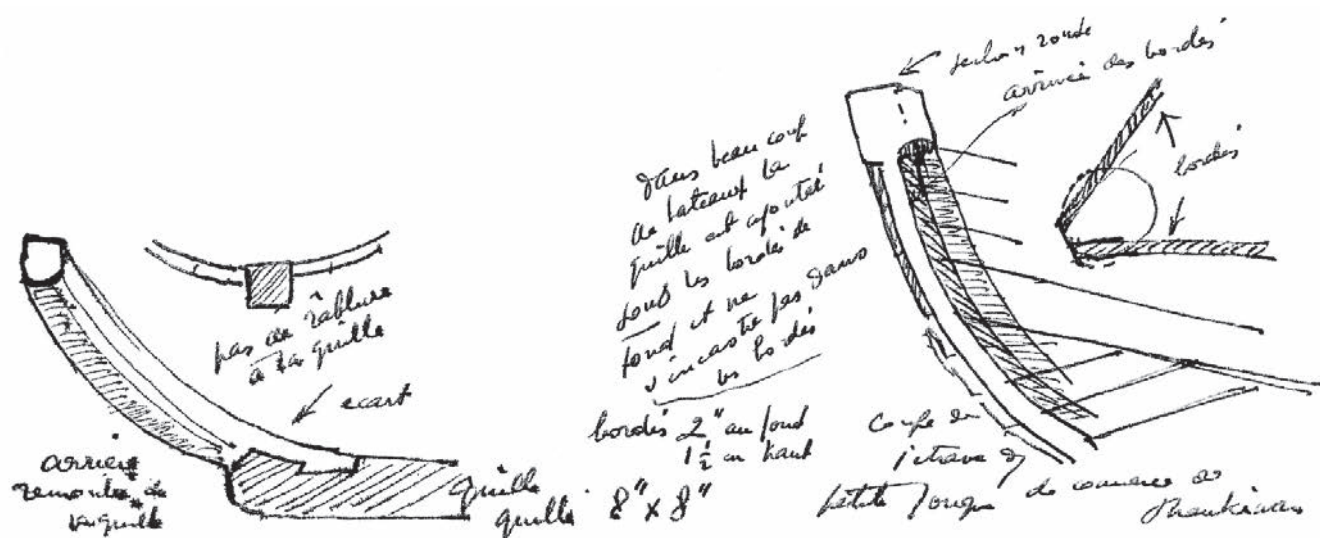 pas de râblure
à la quille
ecart
arrière
remonte de
la quille
quille
quille 8" x 8"
dans beaucoup
de bateaux la
quille est ajoutée
sous les bordés de
fond et ne
s'incastre pas dans
les bordés
bordés 2" au fond
1 1/2 en haut
section ronde
arrivée des bordés
bordés
coupe de
l'étrave de
petite Jonque de commerce de